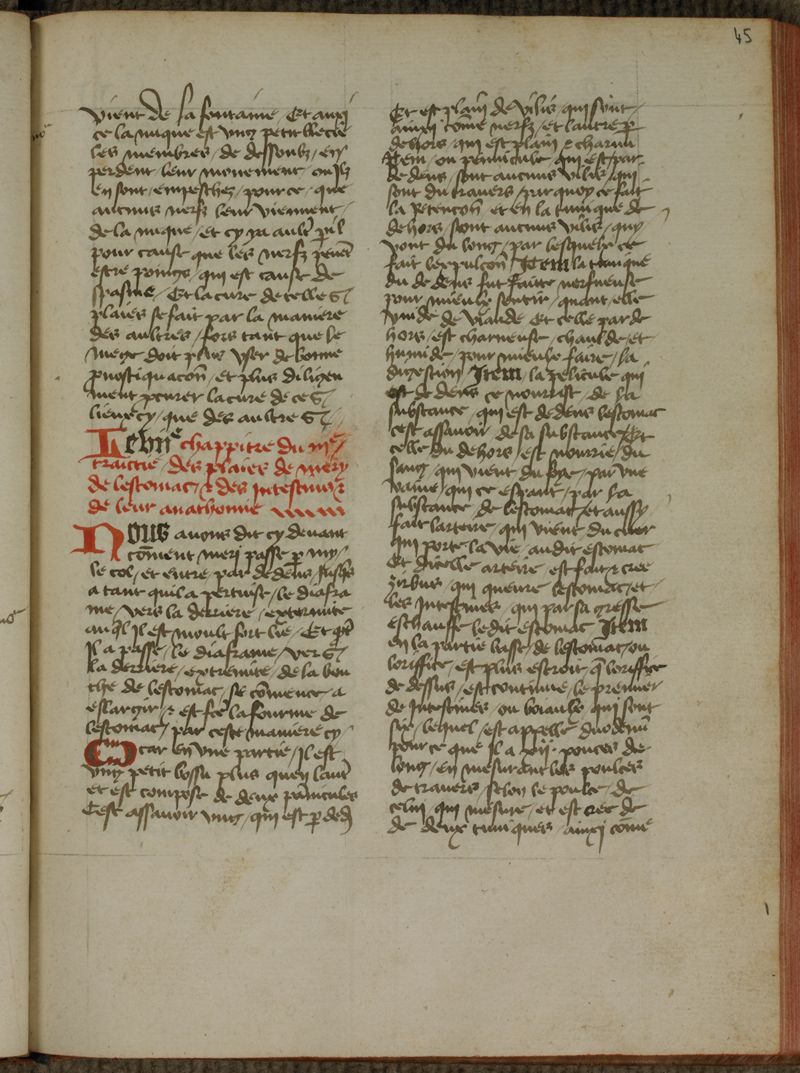 45
vient de la fontaine / Et auxi
ce la nuque est ung petit blecie
les membres / de dessoubz / en
perdent leur mouvement ou ilz
en sont / empeschez / pour ce / que
aucuns nerfz leur viennent /
de la nuque / et cy ya aultre peril
pour cause que les nerfz peuent
estre poings / qui est cause de
spasme / Et la cure de telles
plaies se fait par la maniere
des aultres / fors tant que le
mege doit plus user de bonne
pronostiquacion / et plus diligen
ment procurer la cure de ces
lieux cy / que des aultres
Le chappitre du iiie
traictie / des plaies de mery
de lestomac / et des intestins et
de leur anathomie
Nous avons dit cy devant
coment meri passe par my /
le col / et entre par dedens /
a tant quil a pertuise / le diafra
me / vers la derriere / extremite
auquel il est moult fort lie / Et quant
Il a passe / le diaframe / vers
la derriere / extremite / de la bou
che de lestomac / se comence / a
eslargir / et est fce la fourme de
lestomac / par ceste maniere cy /
Car en une partie / il est
ung petit bossu plus quen lautre
et est compose de deux panicules
Cest assavoir ung / qui est par dedens
Et est plain de vilis / qui sont /
ainxi come nerfz / et lautre par
dehors / qui est plain et charnu
Item / ou pennicule qui est par
dedens / sont aucuns vilis / qui /
sont du travers / par quoy ce fait
la retencion et en la tunique de
dehors / sont aucuns vilis / quy
vont du long / par lesquelz ce
fait lexpulcion Item la tunique
du dedens fut faite nerfueuse
pour mieulx sentir / quant elle
vuide de viande Et celle par de
hors / est charneuse / chaulde / et
humide / pour mieulx faire / la
digestion Item / la pelicule qui
est dedens ce nourrist / de la
substance / qui est dedens lestomac
cest assavoir / de sa substance Et
celle du dehors / est nourrie / du
sang / qui vient du foye / par une
vaine / qui ce espant / par la
substance de lestomac / et aussy
fait lartere / qui vient du cuer
qui porte la vie / au dit estomac
Et dicelle artere / est fait et cree
zirbus / qui queuvre lestomac / et
les intestines / qui par sa gresse
eschauffe le dit estomac Item
en la partie basse de lestomac / ou
lorifice / est plus estroit que lorifice
de dessus / est continue / le premier
de intestines / ou boiaulx qui sont
six / lequel / est appelle duodenum
pour ce que il a xii pouces de
long / en mesurant les poulces
de travers / selon le poulce / de
celui qui mesure / et est cree de
de deux tuniques / ainxi come